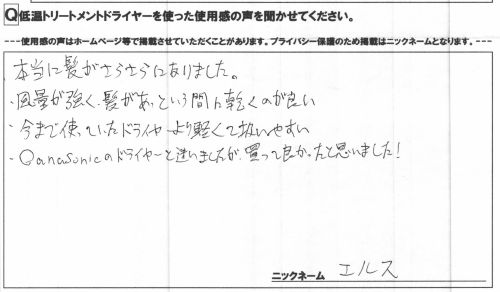 Q 低温トリートメントドライヤーを使った使用感の声を聞かせてください。
----使用感の声はホームページ等で掲載させていただくことがあります。プライバシー保護のため掲載はニックネームとなります。---
本当に髪がさらさらになりました。
・風量が強く、髪があっという間に乾くのが良い
・今まで使っていたドライヤーより軽くて扱いやすい
・Panasonicのドライヤーと迷いましたが、買って良かったと思いました!
ニックネーム エルス